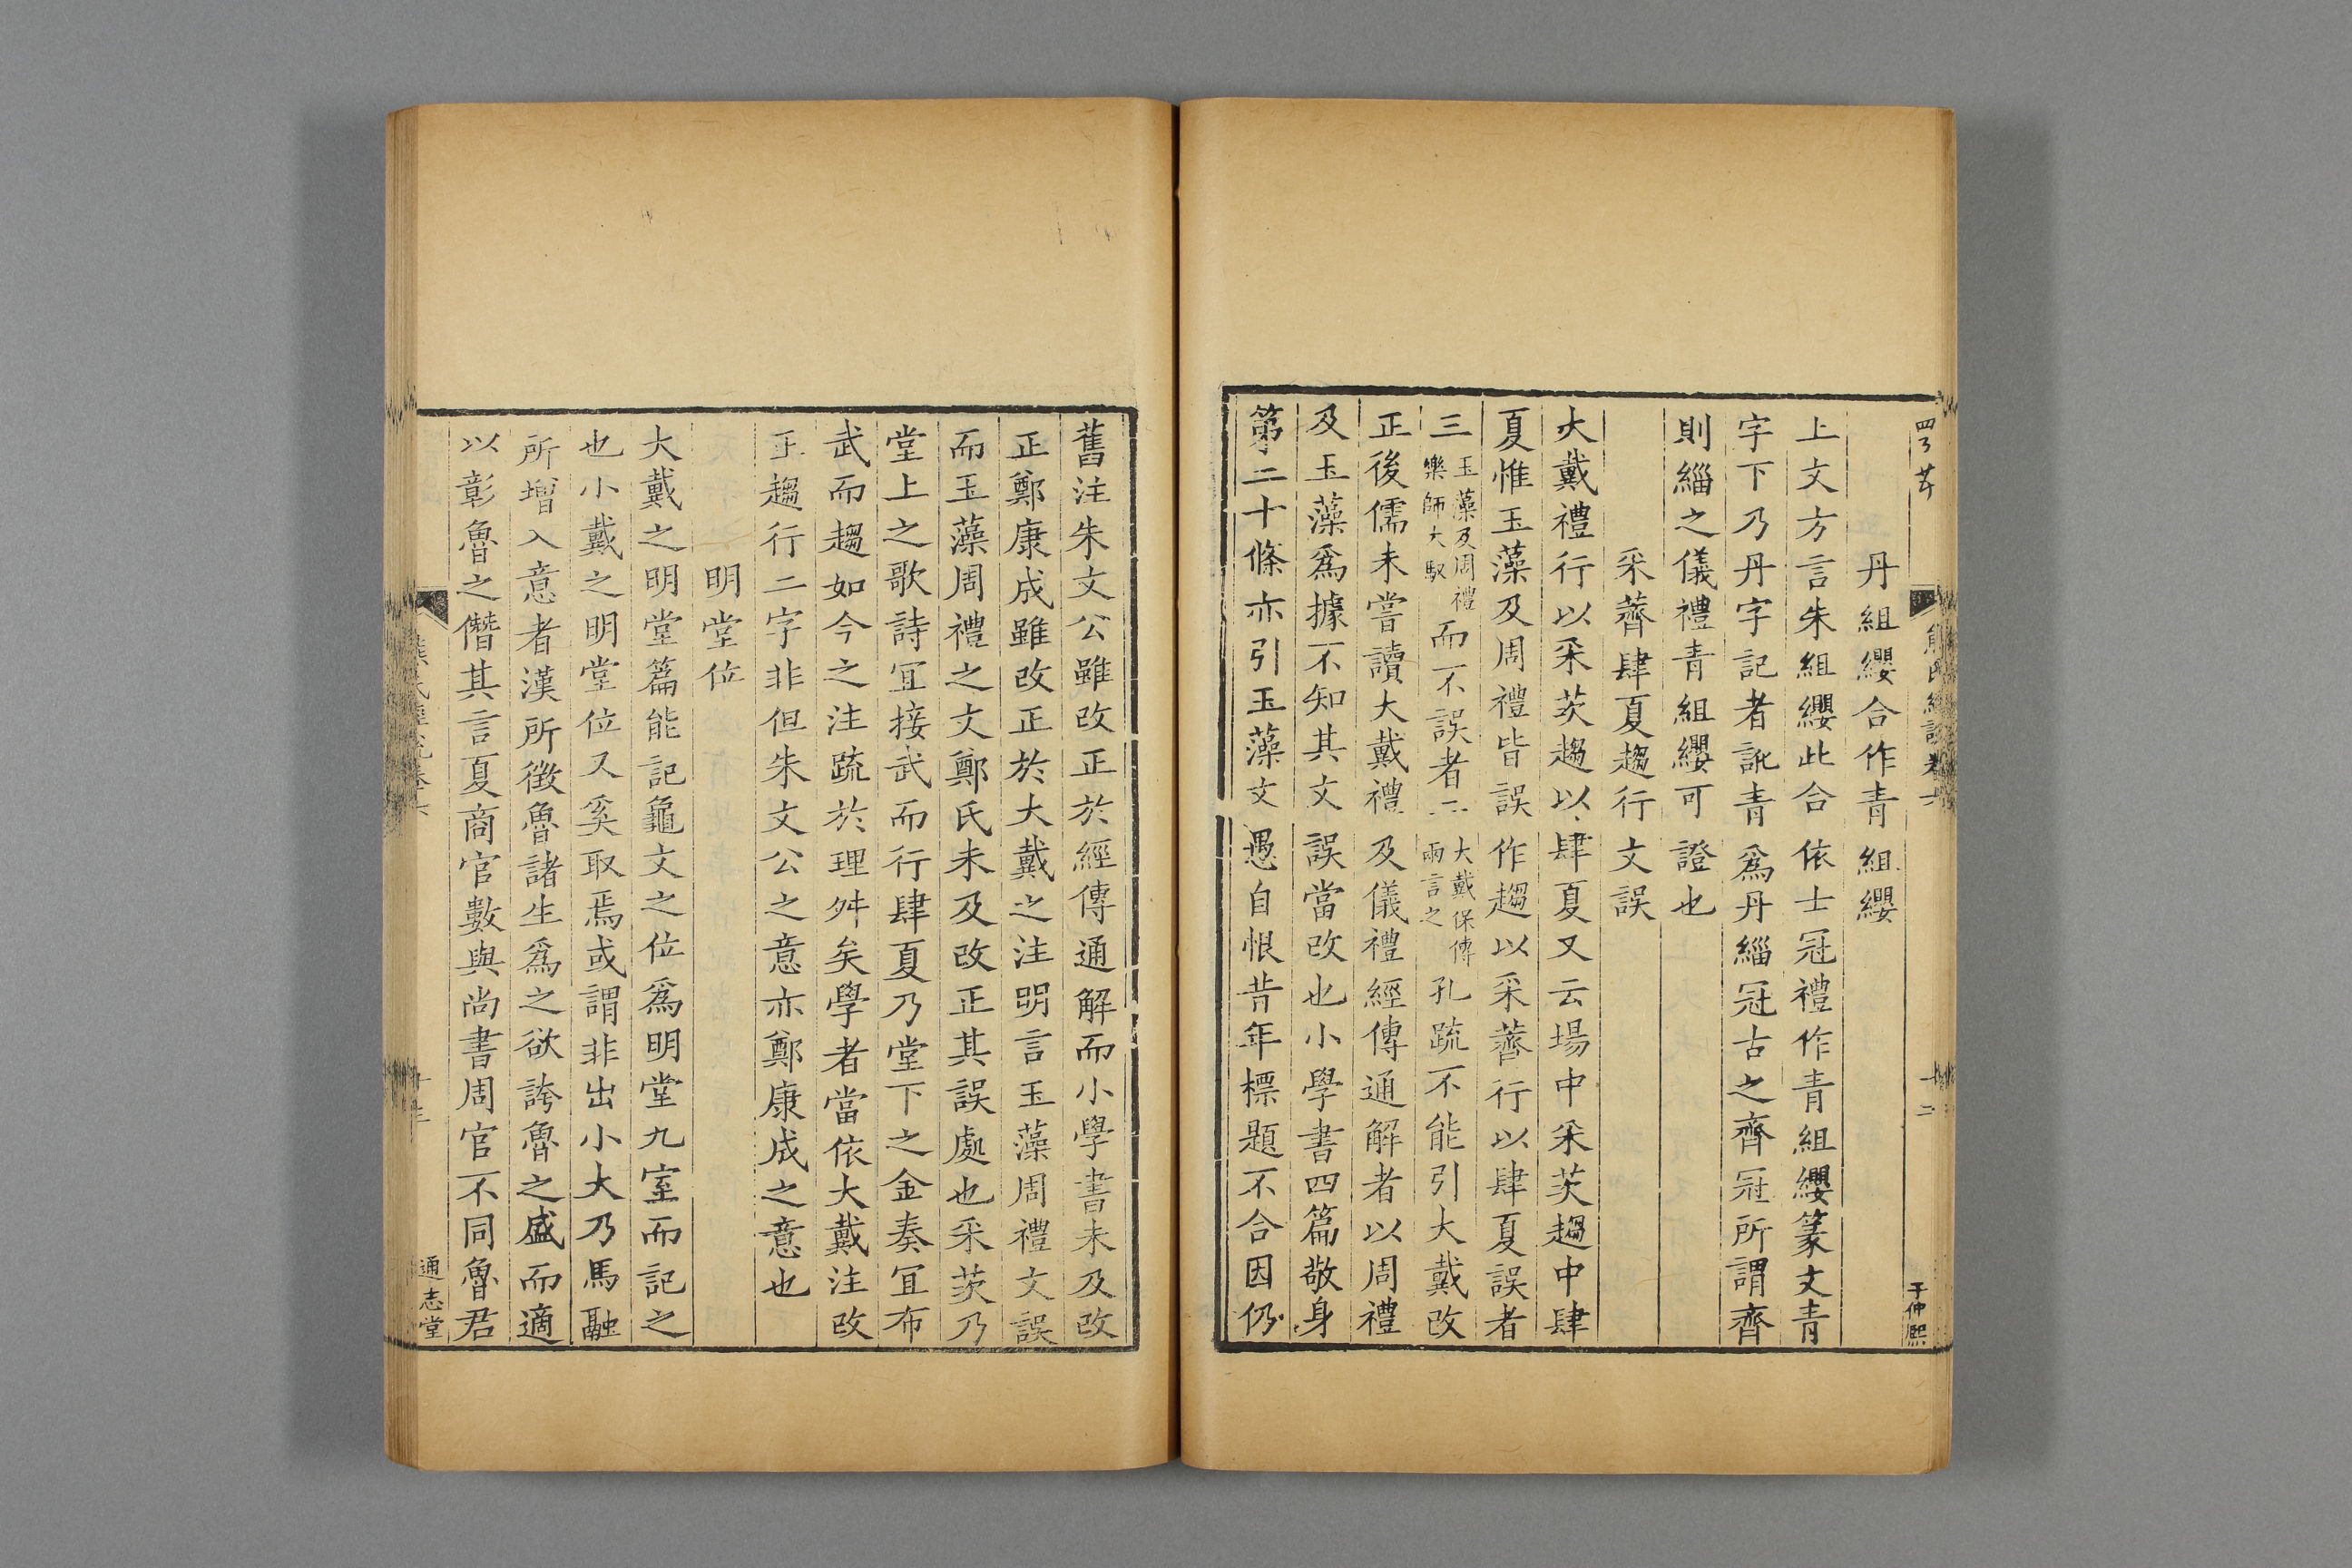 丹組纓合作青組纓
上文方言朱組纓此合依士冠禮作青組纓篆文青
字下乃丹字記者訛青爲丹緇冠古之齊冠所謂齊
則緇之儀禮青組纓可證也
采薺肆夏趨行文誤
大戴禮行以采茨趨以肆夏又云場中采茨趨中肆
夏惟玉藻及周禮皆誤作趨以采薺行以肆夏誤者
三玉藻及周禮樂師大馭而不誤者二大戴保傅兩言之孔疏不能引大戴改
正後儒未嘗讀大戴禮及儀禮經傳通解者以周禮
及玉藻爲據不知其文誤當改也小學書四篇敬身
第二十條亦引玉藻文愚自恨昔年標題不合因仍
熊氏經說卷六
十二
于仲熙
舊注朱文公雖改正於經傳通解而小學書未及改
正鄭康成雖改正於大戴之注明言玉藻周禮文誤
而玉藻周禮之文鄭氏未及改正其誤處也采茨乃
堂上之歌詩宜接武而行肆夏乃堂下之金奏宜布
武而趨如今之注疏於理舛矣學者當依大戴注改
正趨行二字非但朱文公之意亦鄭康成之意也
明堂位
大戴之明堂篇能記龜文之位爲明堂九室而記之
也小戴之明堂位又奚取焉或謂非出小大乃馬融
所增入意者漢所徵魯諸生爲之欲誇魯之盛而適
以彰魯之僭其言夏商官數與尚書周官不同魯君
熊氏經說卷六
十三
通志堂